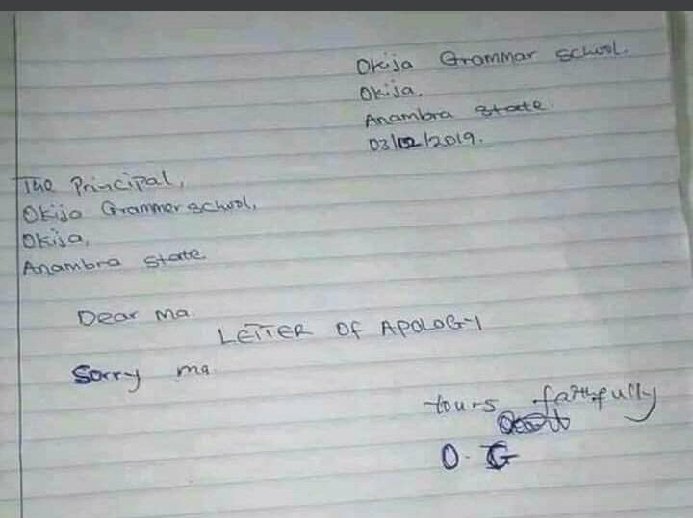 Okija Grammar school.
Okija.
Anambra state.
03/02/2019.
The Principal,
Okija Grammer school,
Okija,
Anambra state.
Dear Ma
LETTER OF APOLOGY
Sorry ma
Yours faithfully
O. G